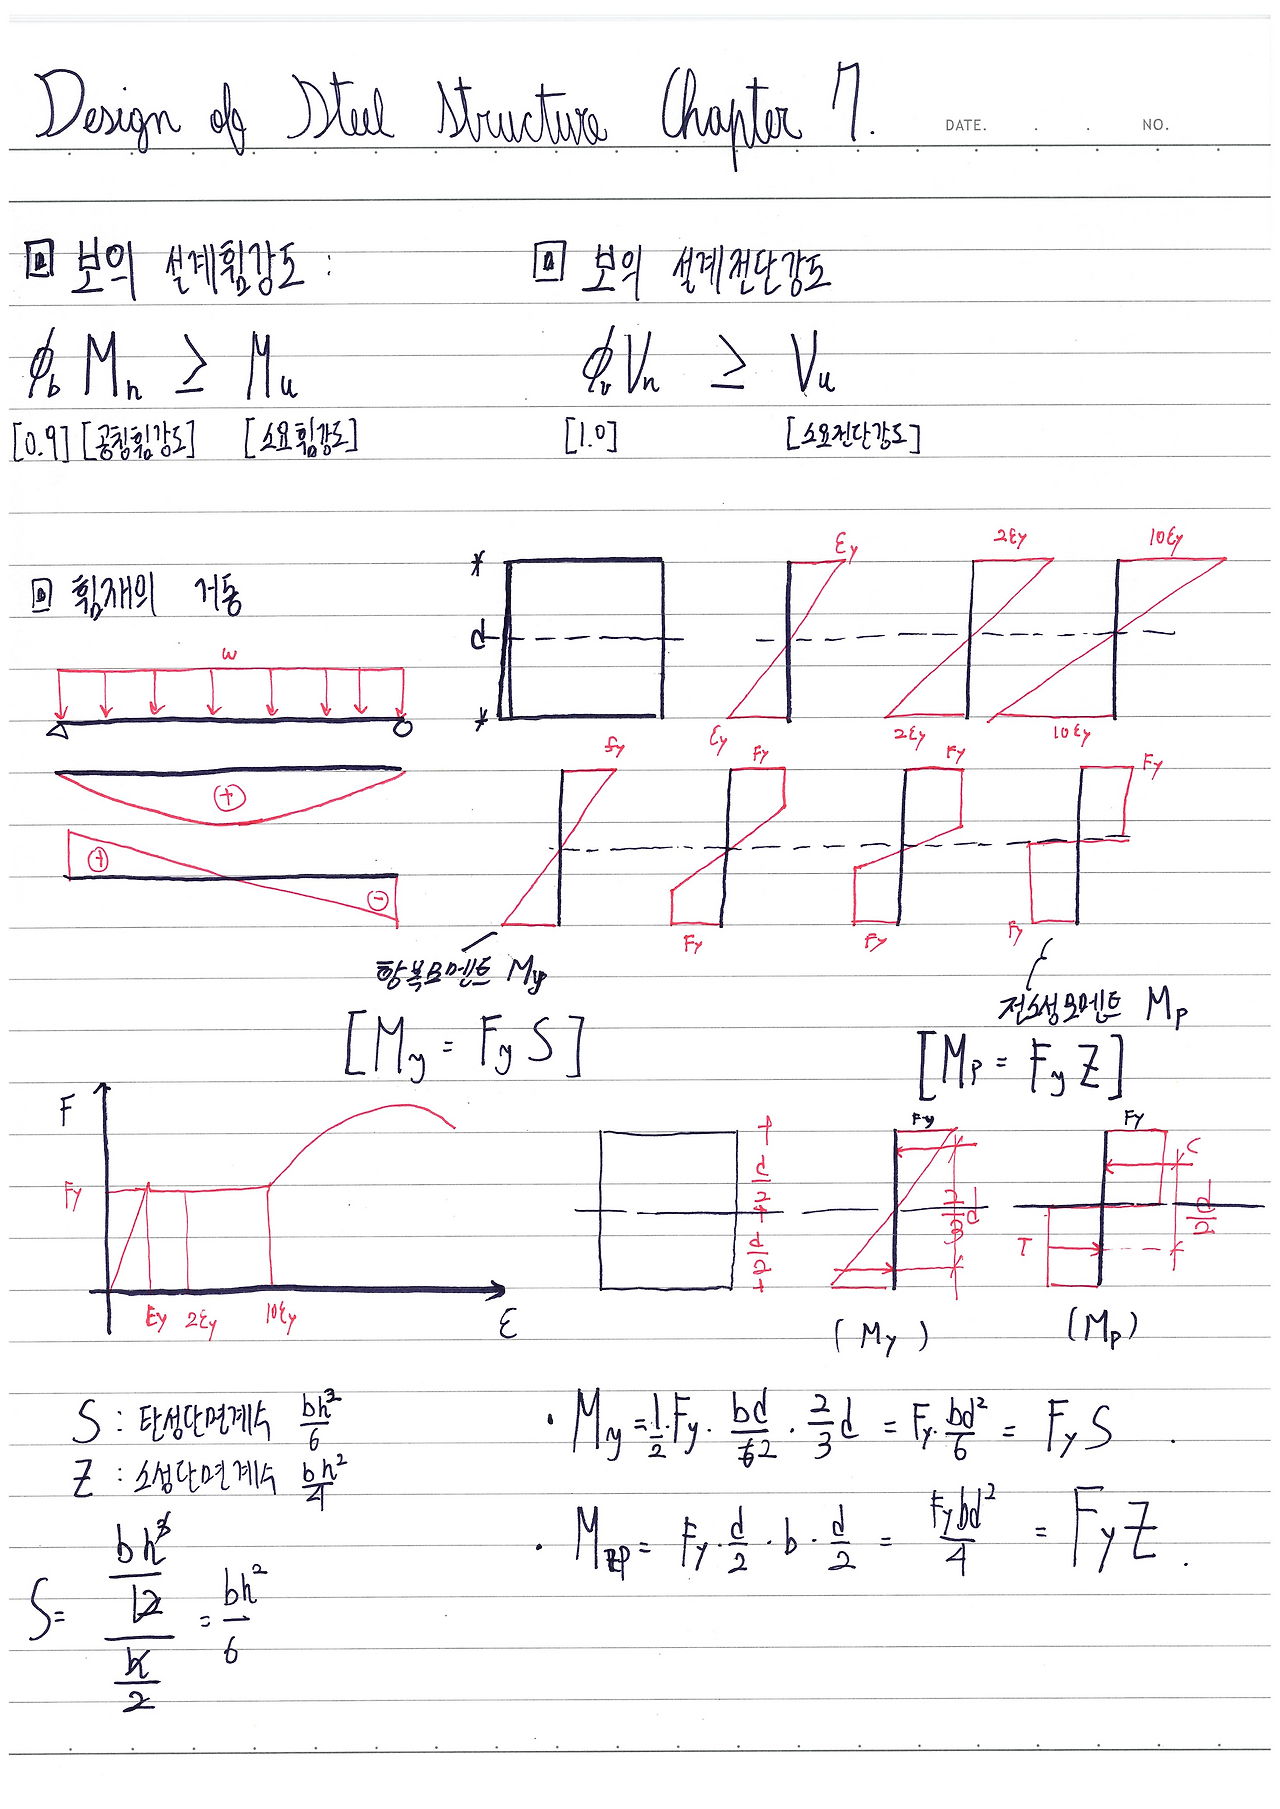 Design of Steel Structure Chapter 7.
DATE. . . NO.
보의 설계휨강도 :
보의 설계전단강도
ϕb Mn ≥ Mu
ϕv Vn ≥ Vu
[0.9] [공칭휨강도] [소요휨강도]
[1.0] [소요전단강도]
휨재의 거동
w
⊕
⊕
⊖
d
εy 2εy 10εy
εy 2εy 10εy
fy Fy Fy Fy
Fy Fy Fy
항복모멘트 My
[My = Fy S]
전소성모멘트 Mp
[Mp = Fy Z]
F
Fy
εy 2εy 10εy
ε
d/2
d/2
Fy
2/3 d
(My)
Fy
C
T
d/2
(Mp)
S : 탄성단면계수 bh²/6
Z : 소성단면계수 bh²/4
S = (bh³/12)/(h/2) = bh²/6
· My = 1/2 · Fy · bd/2 · 2/3 d = Fy · bd²/6 = Fy S .
· Mp = Fy · d/2 · b · d/2 = Fy bd²/4 = Fy Z .